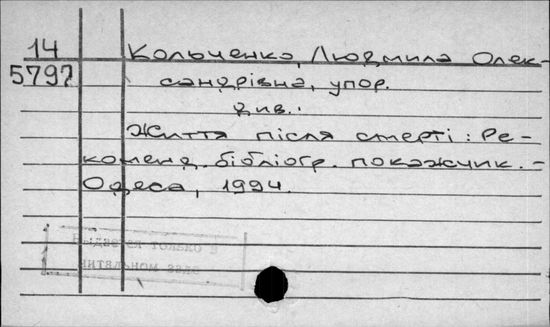 14
5797
Кольченко, Людмила Олек-
сандрівна, упор.
див.:
Життя після смерті: Ре-
коменд. бібліогр. покажчик. -
Одеса, 1994.
Выдается только в
читальном зале